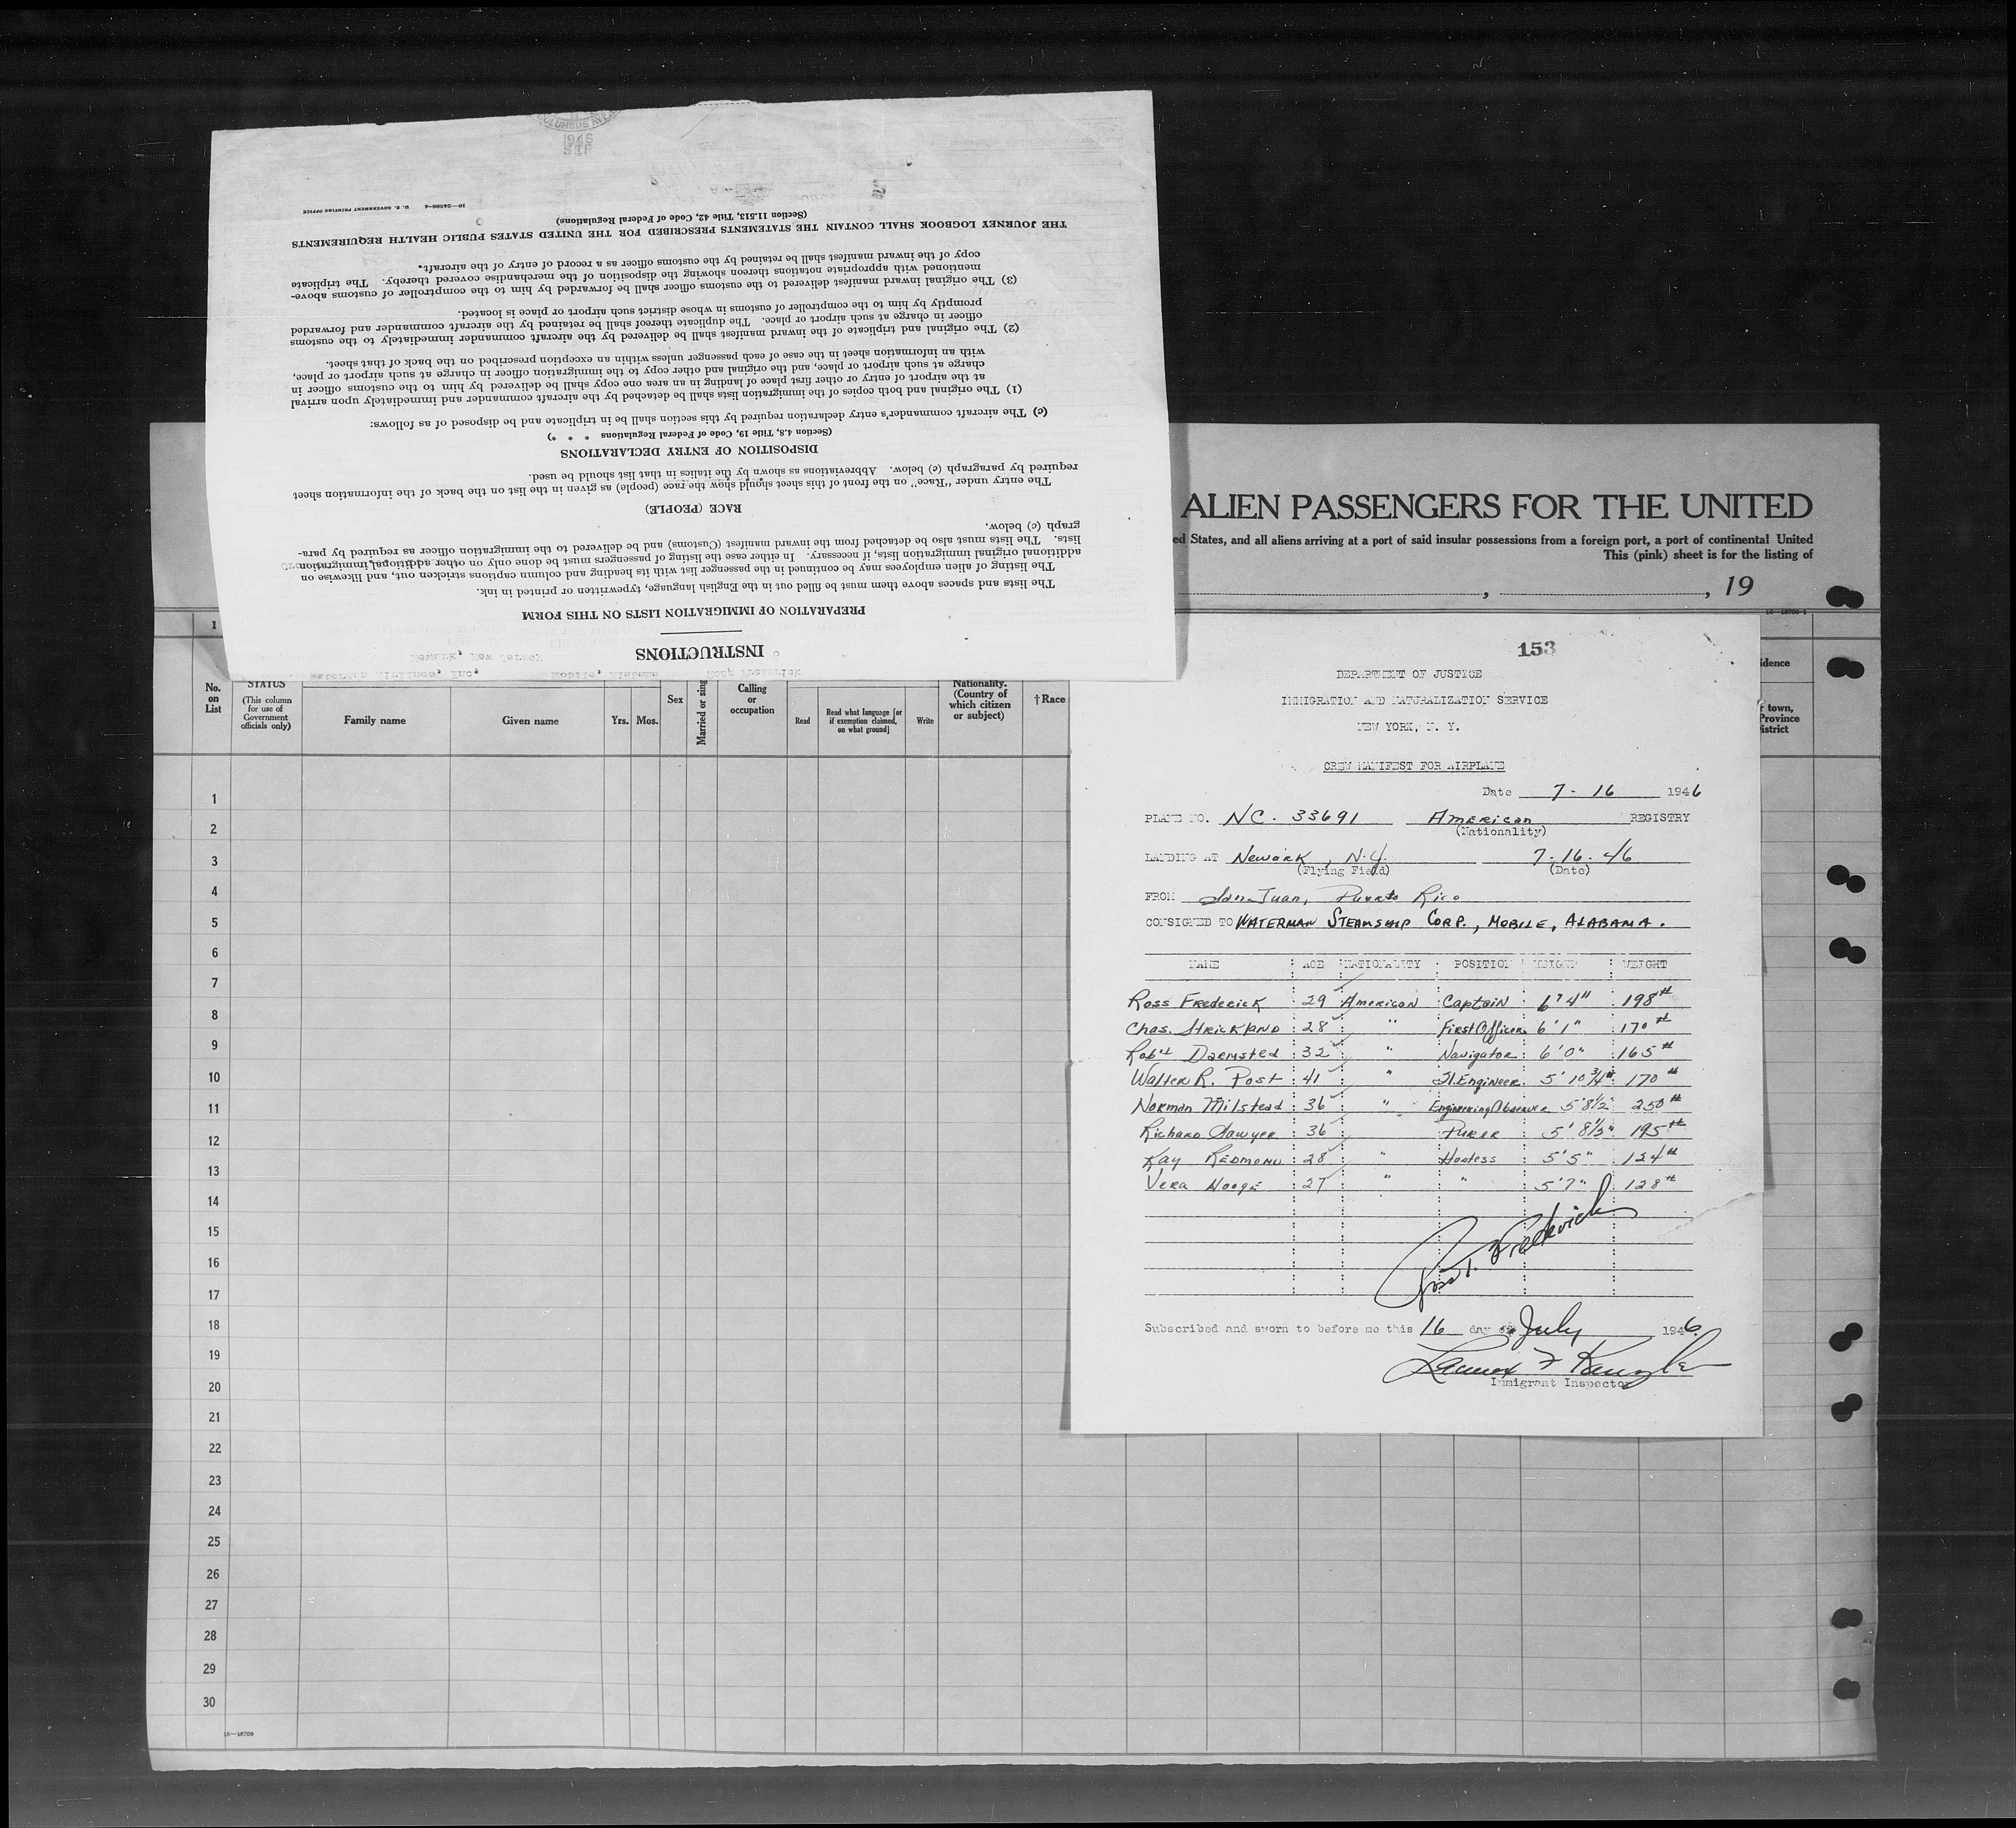 COLUMBUS AVE
1946
SEP
INSTRUCTIONS
PREPARATION OF IMMIGRATION LISTS ON THIS FORM
The lists and spaces above them must be filled out in the English language, typewritten or printed in ink.
The listing of alien employees may be continued in the passenger list with its heading and column captions stricken out, and likewise on
additional original immigration lists, if necessary. In either case the listing of passengers must be done only on other additional immigration
lists. The lists must also be detached from the inward manifest (Customs) and be delivered to the immigration officer as required by para-
graph (c) below.
RACE (PEOPLE)
The entry under "Race" on the front of this sheet should show the race (people) as given in the list on the back of the information sheet
required by paragraph (c) below. Abbreviations as shown by the italics in that list should be used.
DISPOSITION OF ENTRY DECLARATIONS
(Section 4.8, Title 19, Code of Federal Regulations * * *)
(c) The aircraft commander's entry declaration required by this section shall be in triplicate and be disposed of as follows:
(1) The original and both copies of the immigration lists shall be detached by the aircraft commander and immediately upon arrival
at the airport of entry or other first place of landing in an area one copy shall be delivered by him to the customs officer in
charge at such airport or place, and the original and other copy to the immigration officer in charge at such airport or place,
with an information sheet in the case of each passenger unless within an exception prescribed on the back of that sheet.
(2) The original and triplicate of the inward manifest shall be delivered by the aircraft commander immediately to the customs
officer in charge at such airport or place. The duplicate thereof shall be retained by the aircraft commander and forwarded
promptly by him to the comptroller of customs in whose district such airport or place is located.
(3) The original inward manifest delivered to the customs officer shall be forwarded by him to the comptroller of customs above-
mentioned with appropriate notations thereon showing the disposition of the merchandise covered thereby. The triplicate
copy of the inward manifest shall be retained by the customs officer as a record of entry of the aircraft.
THE JOURNEY LOGBOOK SHALL CONTAIN THE STATEMENTS PRESCRIBED FOR THE UNITED STATES PUBLIC HEALTH REQUIREMENTS
(Section 11.513, Title 42, Code of Federal Regulations)
U. S. GOVERNMENT PRINTING OFFICE 16—24598-4
ALIEN PASSENGERS FOR THE UNITED
ed States, and all aliens arriving at a port of said insular possessions from a foreign port, a port of continental United
This (pink) sheet is for the listing of
, , 19
1
No. on List
STATUS (This column for use of Government officials only)
Family name
Given name
Yrs.
Mos.
Sex
Married or sing
Calling or occupation
Read
Read what language [or if exemption claimed, on what ground]
Write
Nationality. (Country of which citizen or subject)
†Race
idence
r town,
Province
istrict
1
2
3
4
5
6
7
8
9
10
11
12
13
14
15
16
17
18
19
20
21
22
23
24
25
26
27
28
29
30
16—18709
153
DEPARTMENT OF JUSTICE
IMMIGRATION AND NATURALIZATION SERVICE
NEW YORK, N. Y.
CREW MANIFEST FOR AIRPLANE
Date 7-16 1946
PLANE NO. NC. 33691 American REGISTRY
(Nationality)
LANDING AT Newark, N.J. 7-16-46
(Flying Field) (Date)
FROM San Juan, Puerto Rico
CONSIGNED TO WATERMAN STEAMSHIP CORP., MOBILE, ALABAMA.
NAME AGE NATIONALITY POSITION HEIGHT WEIGHT
Ross Frederick 29 American Captain 6'4" 198#
Chas. Strickland 28 " First Officer 6'1" 170#
Rob't Darmsted 32 " Navigator 6'0" 165#
Walter R. Post 41 " Fl. Engineer 5'10 3/4" 170#
Norman Milstead 36 " Engineering Observer 5'8 1/2" 250#
Richard Sawyer 36 Purser 5'8 1/2" 195#
Kay Redmond 28 " Hostess 5'5" 124#
Vera Hooge 27 " " 5'7" 128#
Ross T. Frederick
Subscribed and sworn to before me this 16 day of July 1946
Immigrant Inspector